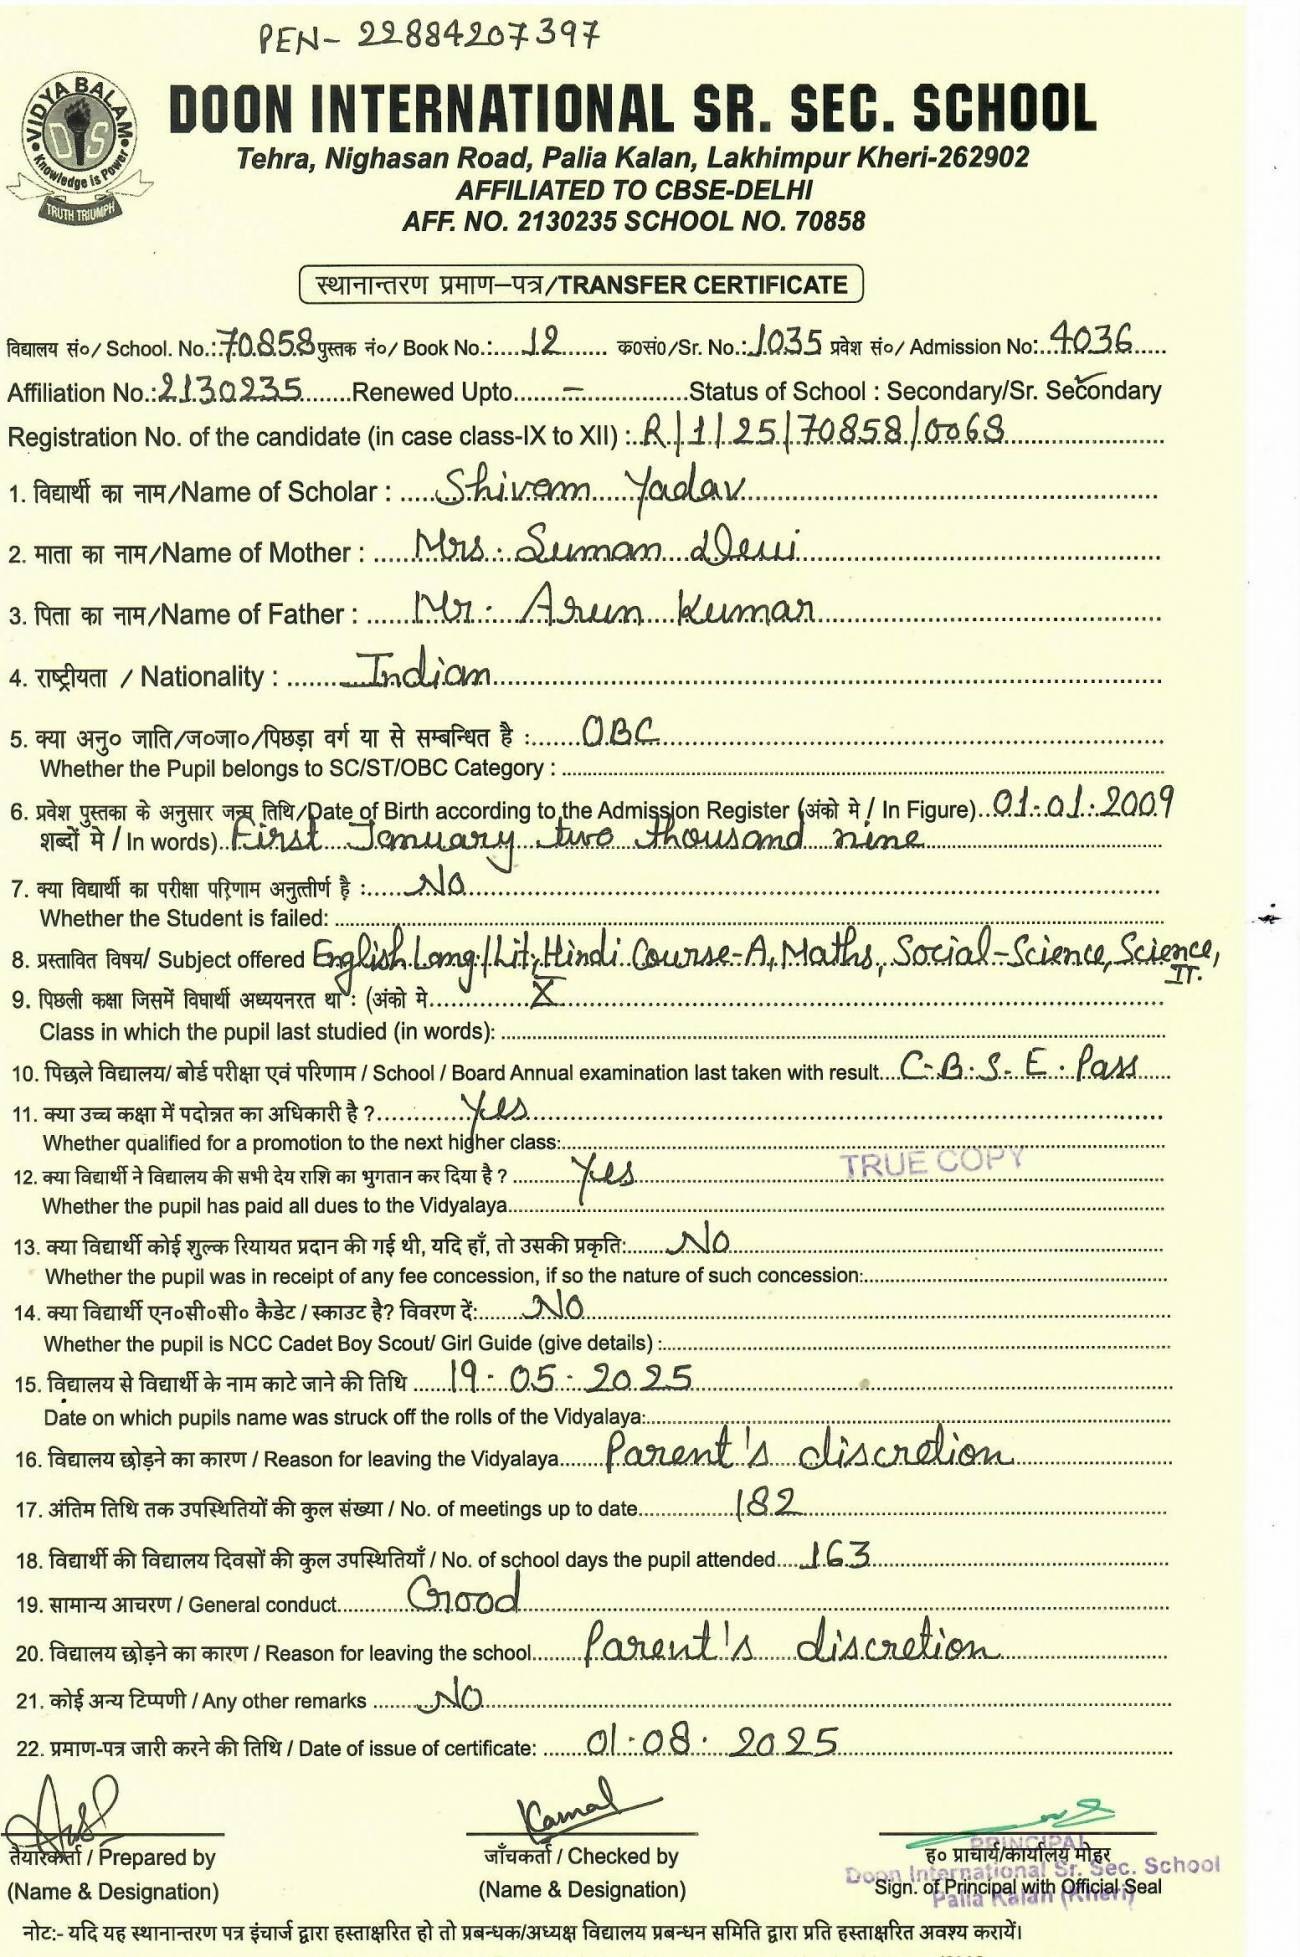 PEN- 22884207397
VIDYA BALAM
DIS
Knowledge is Power
TRUTH TRIUMPH
DOON INTERNATIONAL SR. SEC. SCHOOL
Tehra, Nighasan Road, Palia Kalan, Lakhimpur Kheri-262902
AFFILIATED TO CBSE-DELHI
AFF. NO. 2130235 SCHOOL NO. 70858
स्थानान्तरण प्रमाण–पत्र/TRANSFER CERTIFICATE
विद्यालय सं०/ School. No.: 70858 पुस्तक नं०/ Book No.: 12 क०सं०/Sr. No.: 1035 प्रवेश सं०/ Admission No: 4036
Affiliation No.: 2130235 Renewed Upto – Status of School : Secondary/Sr. Secondary
Registration No. of the candidate (in case class-IX to XII) : R/1/25/70858/0068
1. विद्यार्थी का नाम/Name of Scholar : Shivam Yadav
2. माता का नाम/Name of Mother : Mrs. Suman Devi
3. पिता का नाम/Name of Father : Mr. Arun Kumar
4. राष्ट्रीयता / Nationality : Indian
5. क्या अनु० जाति/ज०जा०/पिछड़ा वर्ग या से सम्बन्धित है : OBC
Whether the Pupil belongs to SC/ST/OBC Category :
6. प्रवेश पुस्तका के अनुसार जन्म तिथि/Date of Birth according to the Admission Register (अंको मे / In Figure) 01.01.2009
शब्दों मे / In words) First January two thousand nine
7. क्या विद्यार्थी का परीक्षा परिणाम अनुत्तीर्ण है : No
Whether the Student is failed:
8. प्रस्तावित विषय/ Subject offered English Lang/Lit, Hindi Course-A, Maths, Social-Science, Science, IT.
9. पिछली कक्षा जिसमें विघार्थी अध्ययनरत था : (अंको मे X
Class in which the pupil last studied (in words):
10. पिछले विद्यालय/ बोर्ड परीक्षा एवं परिणाम / School / Board Annual examination last taken with result C.B.S.E. Pass
11. क्या उच्च कक्षा में पदोन्नत का अधिकारी है ? Yes
Whether qualified for a promotion to the next higher class:
TRUE COPY
12. क्या विद्यार्थी ने विद्यालय की सभी देय राशि का भुगतान कर दिया है ? Yes
Whether the pupil has paid all dues to the Vidyalaya
13. क्या विद्यार्थी कोई शुल्क रियायत प्रदान की गई थी, यदि हाँ, तो उसकी प्रकृति: No
Whether the pupil was in receipt of any fee concession, if so the nature of such concession:
14. क्या विद्यार्थी एन०सी०सी० कैडेट / स्काउट है? विवरण दें: No
Whether the pupil is NCC Cadet Boy Scout/ Girl Guide (give details) :
15. विद्यालय से विद्यार्थी के नाम काटे जाने की तिथि 19.05.2025
Date on which pupils name was struck off the rolls of the Vidyalaya:
16. विद्यालय छोड़ने का कारण / Reason for leaving the Vidyalaya Parent's discretion
17. अंतिम तिथि तक उपस्थितियों की कुल संख्या / No. of meetings up to date 182
18. विद्यार्थी की विद्यालय दिवसों की कुल उपस्थितियाँ / No. of school days the pupil attended 163
19. सामान्य आचरण / General conduct Good
20. विद्यालय छोड़ने का कारण / Reason for leaving the school Parent's discretion
21. कोई अन्य टिप्पणी / Any other remarks No
22. प्रमाण-पत्र जारी करने की तिथि / Date of issue of certificate: 01.08.2025
Kamal
तैयारकर्ता / Prepared by जाँचकर्ता / Checked by ह० प्राचार्य/कार्यालय मोहर
PRINCIPAL
Doon International Sr. Sec. School
(Name & Designation) (Name & Designation) Sign. of Principal with Official Seal
Palia Kalan (Kheri)
नोट:- यदि यह स्थानान्तरण पत्र इंचार्ज द्वारा हस्ताक्षरित हो तो प्रबन्धक/अध्यक्ष विद्यालय प्रबन्धन समिति द्वारा प्रति हस्ताक्षरित अवश्य करायें।